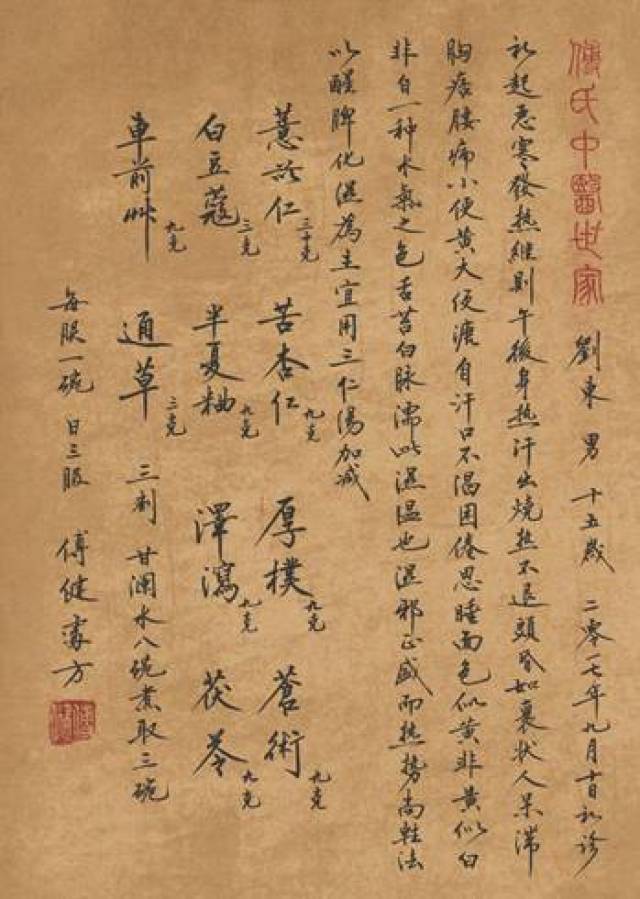 傅氏中醫世家
劉東 男 十五歲 二零一七年九月十日初診
初起惡寒發热繼則午後身热汗出燒热不退頭昏如裹狀人呆滞
胸痞腰痛小便黄大便溏自汗口不渴困倦思睡面色似黄非黄似白
非白一种水氣之色舌苔白脉濡此濕温也濕邪正盛而热势尚輕法
以醒脾化濕為主宜用三仁湯加减
薏苡仁三十克 苦杏仁九克 厚樸九克 蒼術九克
白豆蔻三克 半夏粬九克 澤瀉九克 茯苓九克
車前艸九克 通草三克 三剂 甘瀾水八碗煮取三碗
每服一碗 日三服 傅健 方